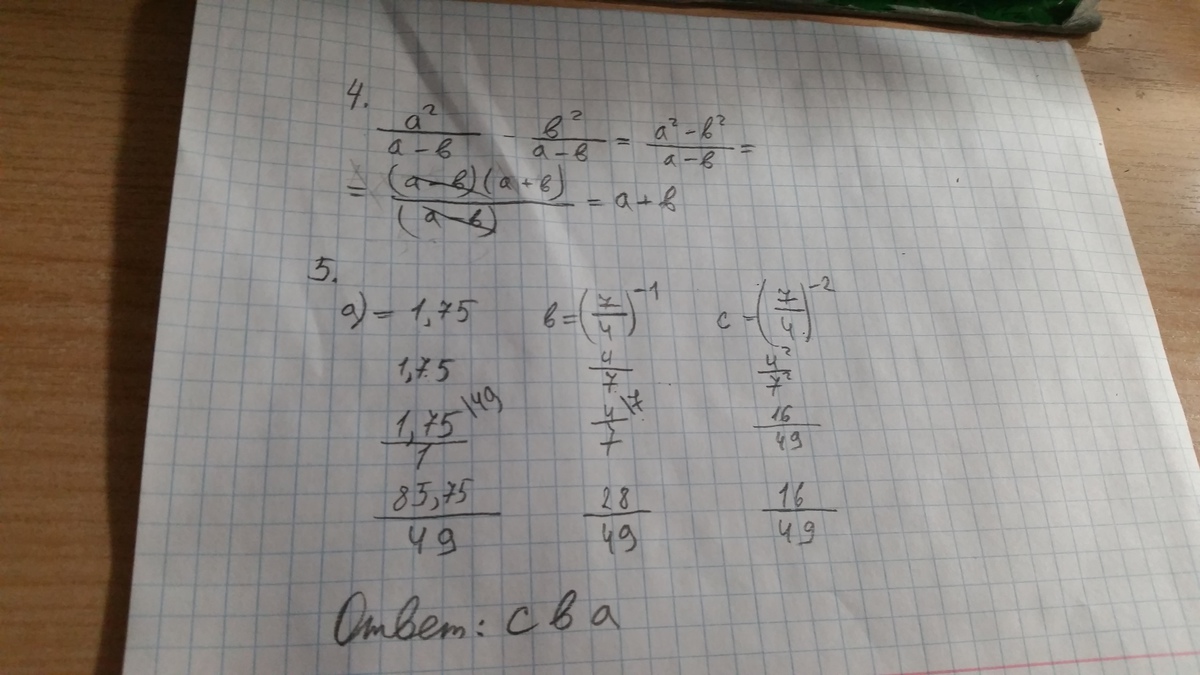 4.
a²/(a-в) - в²/(a-в) = (a²-в²)/(a-в) =
= (a-в)(a+в)/(a-в) = a+в
5.
a) = 1,75 в = (7/4)⁻¹ c = (7/4)⁻²
1,75 4/7 4²/7²
1,75/1 \49 4/7 \7 16/49
85,75/49 28/49 16/49
Ответ: c в a